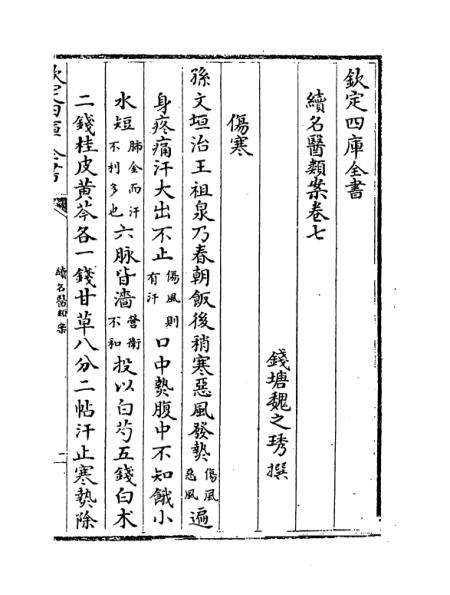 欽定四庫全書
續名醫類案卷七
錢塘魏之琇撰
傷寒
孫文垣治王祖泉乃春朝飯後稍寒惡風發熱傷風惡風遍
身疼痛汗大出不止傷風則有汗口中熱腹中不知餓小
水短肺金而汗不利多也六脈皆濇營衛不和投以白芍五錢白术
二錢桂皮黄芩各一錢甘草八分二帖汗止寒熱除
欽定四庫全書
續名醫類案